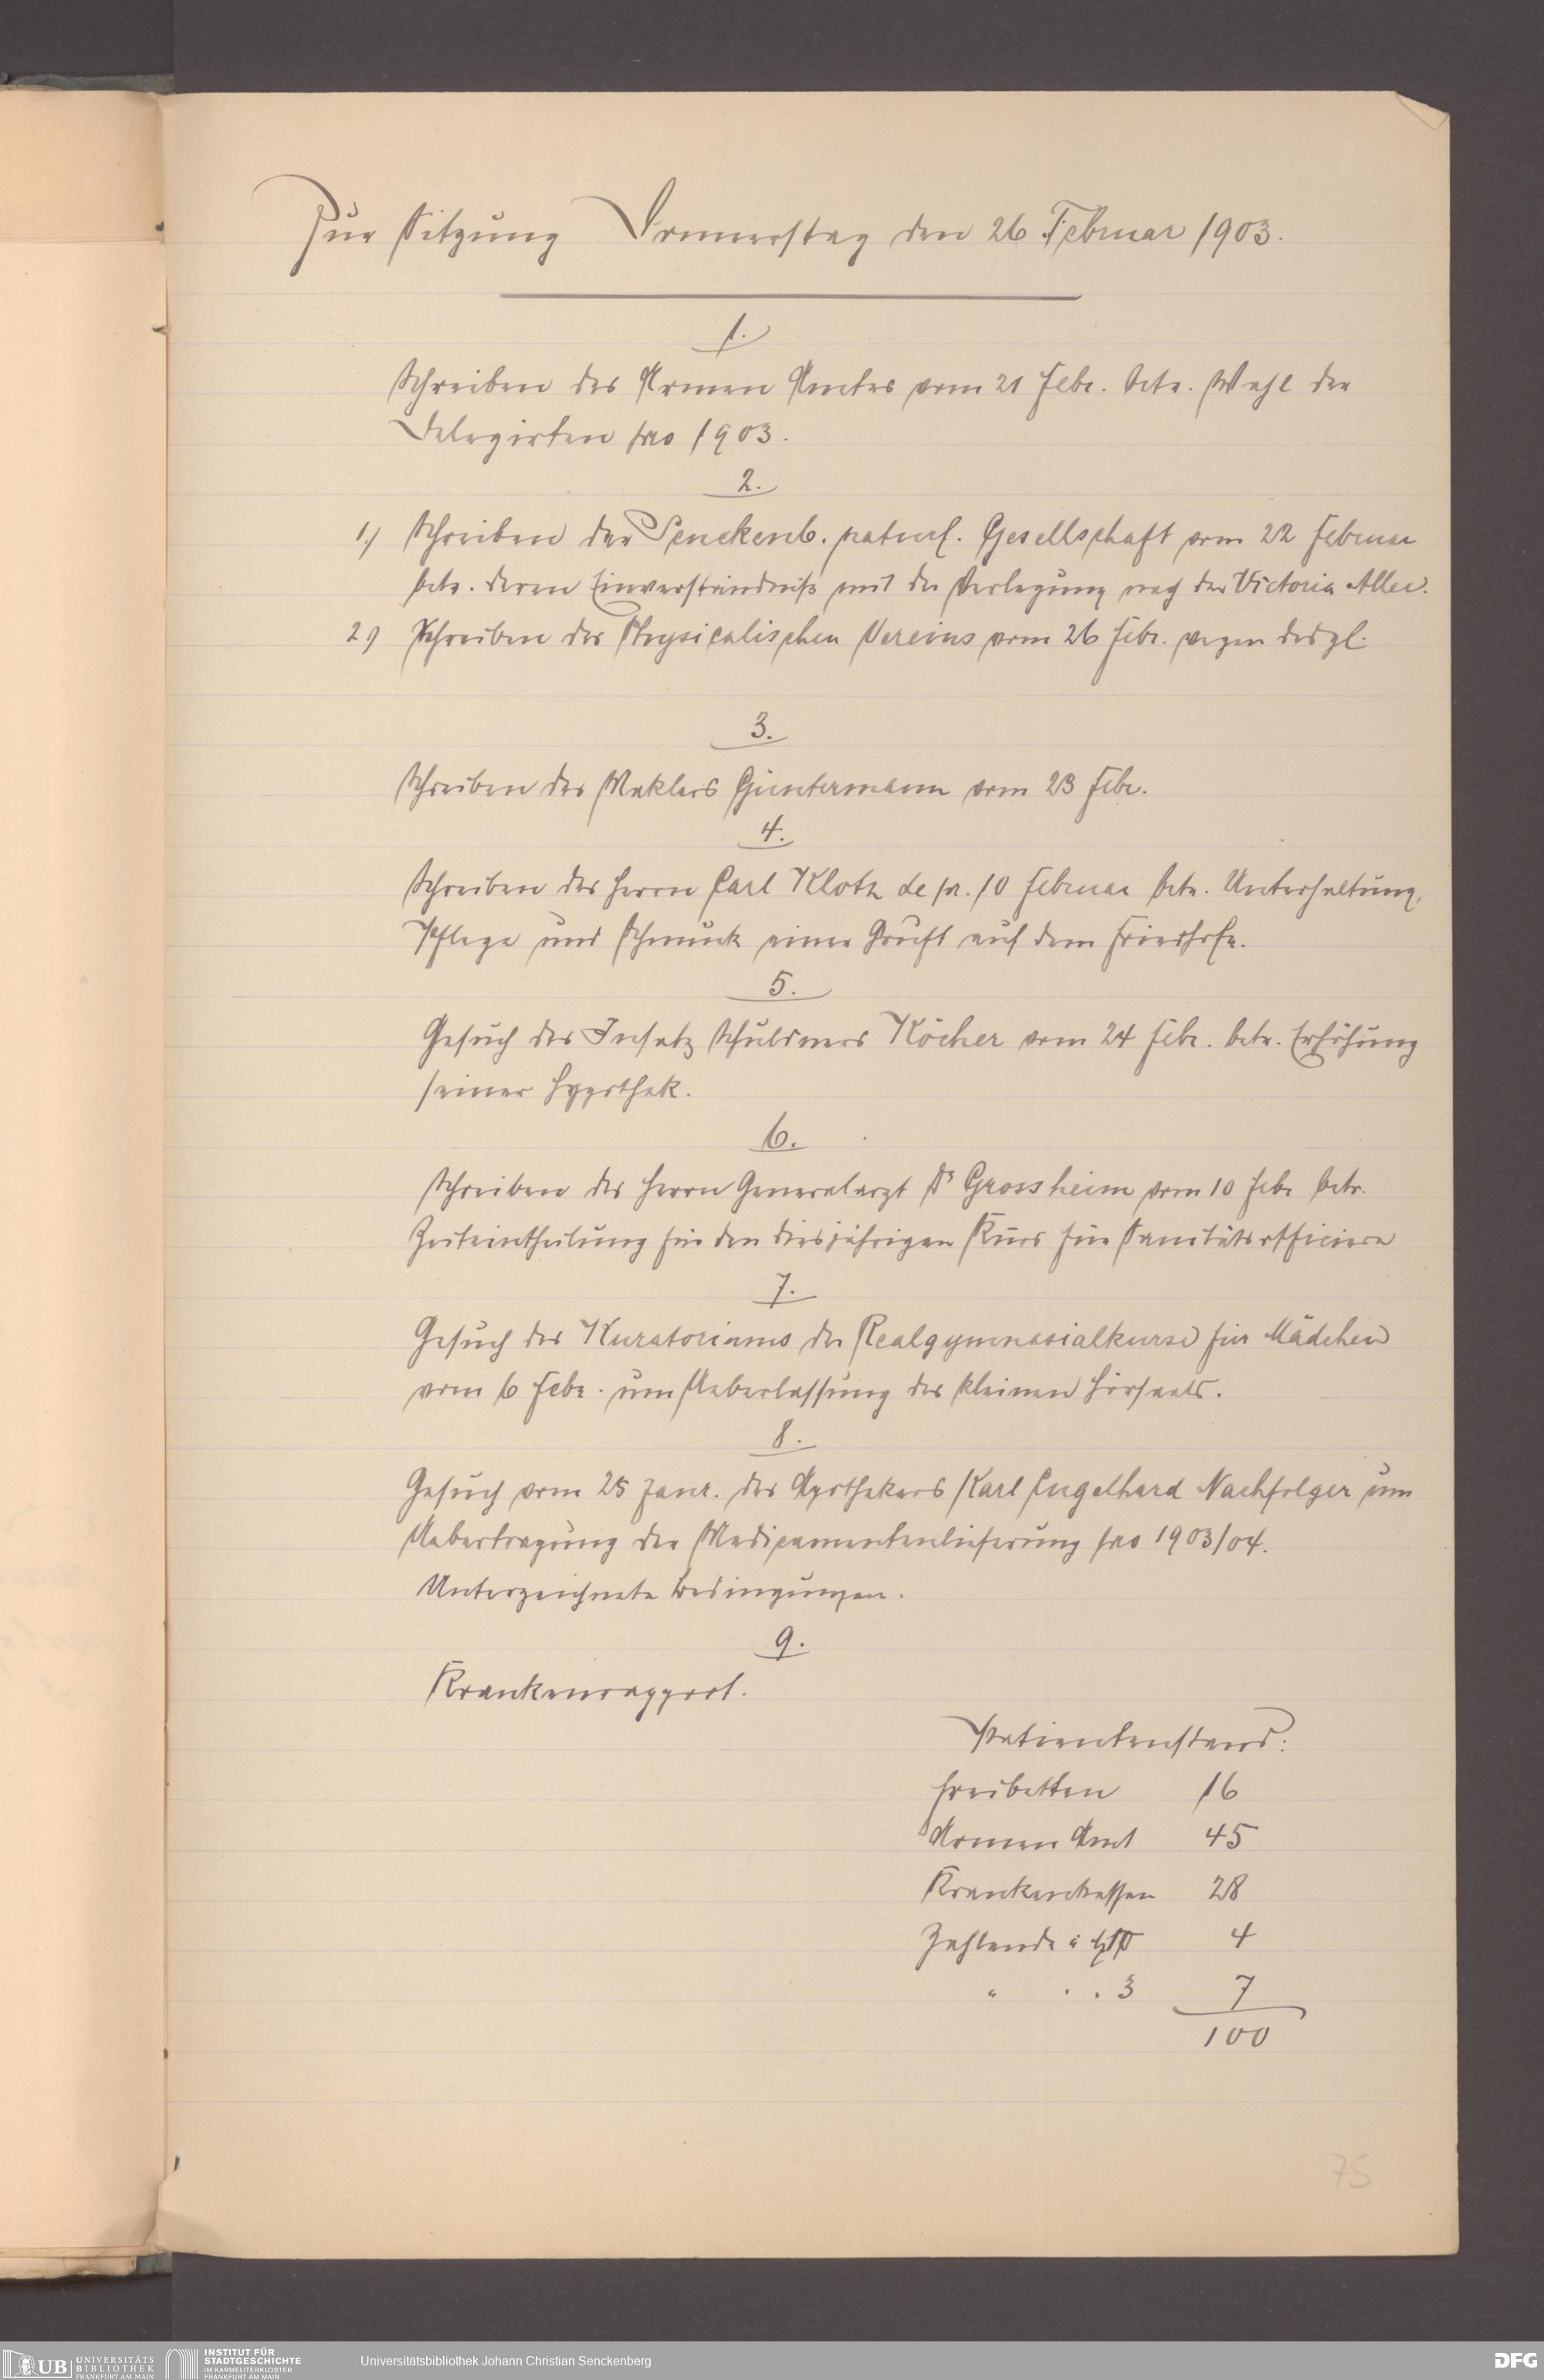 Zur Sitzung Donnerstag den 26 Februar 1903.
1.
Schreiben des Armen Amtes vom 21 Febr. betr. Wahl der
Delegirten pro 1903.
2.
1.) Schreiben der Senckenb. naturf. Gesellschaft vom 22 Februar
betr. deren Einverständniß mit der Verlegung nach der Victoria Allee.
2.) Schreiben des Physicalischen Vereins vom 26 Febr. wegen desgl.
3.
Schreiben des Maklers Güntermann vom 23 Febr.
4.
Schreiben des Herrn Carl Klotz de pr. 10 Februar betr. Unterhaltung,
Pflege und Schmuck einer Gruft auf dem Friedhofe.
5.
Gesuch des Insatz Schuldners Köcher vom 24 Febr. betr. Erhöhung
seiner Hypothek.
6.
Schreiben des Herrn Generalarzt Dr Grossheim vom 10 Febr betr.
Zeiteintheilung für den diesjährigen Kurs für Sanitätsofficiere
7.
Gesuch des Kuratoriums der Realgymnasialkurse für Mädchen
vom 6 Febr. um Ueberlassung des kleinen Hörsaals.
8.
Gesuch vom 25 Janr. des Apothekers Karl Engelhard Nachfolger um
Uebertragung der Medicamentenlieferung pro 1903/04.
Unterzeichnete Bedingungen.
9.
Krankenrapport.
Patientenstand:
Freibetten 16
Armen Amt 45
Krankenkassen 28
Zahlende à 4
" " " 3 7
100
75
UB UNIVERSITÄTS
BIBLIOTHEK
FRANKFURT AM MAIN
INSTITUT FÜR
STADTGESCHICHTE
IM KARMELITERKLOSTER
FRANKFURT AM MAIN
Universitätsbibliothek Johann Christian Senckenberg
DFG